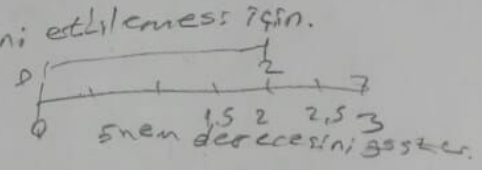 ni etkilemesi için.
0 2
0 1,5 2 2,5 3
önem derecesini göster.